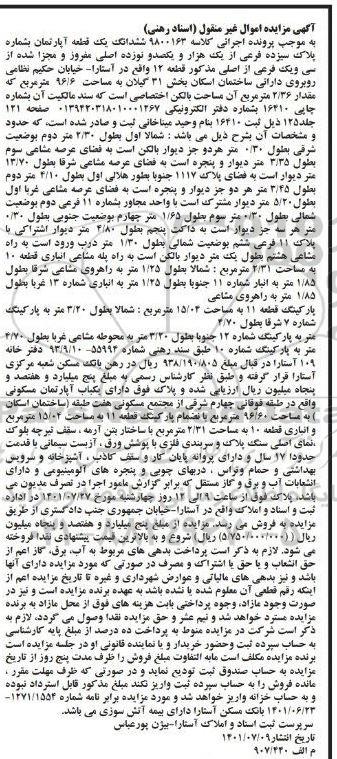 آگهی مزایده اموال غیر منقول (اسناد رهنی)
به موجب پرونده اجرائی کلاسه ۹۸۰۰۱۶۳ ششدانگ یک قطعه آپارتمان بشماره
پلاک سیزده فرعی از یک هزار و یکصدو نوزده اصلی مفروز و مجزا شده از
سی ویک فرعی از اصلی مذکور قطعه ۱۲ واقع در آستارا- خیابان حکیم نظامی
روبروی دارائی ساختمان اسکان بخش ۳۱ گیلان به مساحت ۹۶/۶ مترمربع که
مقدار ۲/۳۶ مترمربع آن مساحت بالکن اختصاصی است که سند مالکیت آن بشماره
چاپی ۱۶۴۱۰ بشماره دفتر الکترونیکی ۱۳۹۴۲۰۳۱۸۰۱۰۰۰۱۲۶۷ صفحه ۱۲۱
جلد۱۲۵ ذیل ثبت ۱۶۴۱۰ بنام وحید میناخانی ثبت و صادر شده است، که حدود
و مشخصات آن بشرح ذیل می باشد : شمالا اول بطول ۲/۳۰ متر دوم بوضعیت
شرقی بطول ۰/۳۰ متر هردو جز دیوار بالکن است به فضای عرصه مشاعی سوم
بطول ۳/۳۵ متر دیوار و پنجره است به فضای عرصه مشاعی شرقا بطول ۱۳/۷۰
متر دیوار است به فضای پلاک ۱۱۱۷ جنوبا بطور هلالی اول بطول ۴/۱۰ متر دوم
بطول ۳/۴۵ متر هر دو جز دیوار و پنجره است به فضای عرصه مشاعی غربا اول
بطول ۵/۲۰ متر دیوار مشترک است با واحد مجاور بشماره ۱۱ فرعی دوم بوضعیت
شمالی بطول ۰/۳۰ متر سوم بطول ۱/۶۵ متر چهارم بوضعیت جنوبی بطول ۰/۳۰
متر سه جز دیوار است به داکت پنجم بطول ۴/۸۰ متر دیوار اشتراکی با
پلاک ۱۱ فرعی ششم بوضعیت شمالی بطول ۱/۳۰ متر درب ورود است به راه
مشاعی هشتم بطول یک متر دیوار بالکن است به راه پله مشاعی انباری قطعه ۱۰
به مساحت ۲/۳۱ مترمربع : شمالا بطول ۱/۲۵ متر به راهروی مشاعی شرقا بطول
۱/۸۵ متر به انبار شماره ۱۱ جنوبا بطول ۱/۲۵ متر به انباری شماره ۱۳ غربا بطول
۱/۸۵ متر به راهروی مشاعی
پارکینگ قطعه ۱۱ به مساحت ۱۵/۰۴ مترمربع : شمالا بطول ۳/۲۰ متر به پارکینگ
شماره ۷ شرقا بطول ۴/۷۰
متر به پارکینگ شماره ۱۲ جنوبا بطول ۳/۲۰ متر به محوطه مشاعی غربا بطول ۴/۷۰
متر به پارکینگ شماره ۱۰ طبق سند رهنی شماره ۵۵۹۹۴- ۹۳/۹/۱۰ دفتر خانه
۱۰۹ آستارا در قبال مبلغ ۹۳۸/۱۹۰/۸۰۵ ریال در رهن بانک مسکن شعبه مرکزی
آستارا قرار گرفته و طبق نظر کارشناس رسمی به مبلغ پنج میلیارد و هفتصد و
پنجاه میلیون ریال ارزیابی شده و پلاک فوق دارای یکباب آپارتمان مسکونی
واقع در طبقه فوقانی چهارم شرقی از مجتمع مسکونی هفت طبقه (ساختمان اسکان
) به مساحت ۹۶/۶۰ مترمربع با انضمام پارکینگ قطعه ۱۱به مساحت ۱۵/۰۴ مترمربع
و انباری قطعه ۱۰ به مساحت ۲/۳۱ مترمربع با ساختار بتن آرمه ، سقف تیرچه بلوک
،نمای اصلی سنگ پلاک و سربندی فلزی با پوشش ورق ، آزبست سیمانی با قدمت
حدودا ۱۷ سال و دارای پروانه پایان کار و سقف کاذب ، آشپزخانه و سرویس
بهداشتی و حمام وتراس ، دربهای چوبی و پنجره های آلومینیومی و دارای
انشعابات آب و برق و گاز مستقل که برابر گزارش مامور اجرا در تصرف مدیون می
باشد. پلاک فوق از ساعت ۹ الی ۱۲ روز چهارشنبه مورخ ۱۴۰۱/۰۷/۲۷ در اداره
ثبت و اسناد واملاک واقع در آستارا-خیابان جمهوری جنب دادگستری از طریق
مزایده به فروش می رسد. مزایده از مبلغ پنج میلیارد و هفتصد و پنجاه میلیون
ریال (۵/۷۵۰/۰۰۰/۰۰۰ ریال) شروع و به بالاترین قیمت پیشنهادی نقدا فروخته
می شود. لازم به ذکر است پرداخت بدهی های مربوط به آب، برق، گاز اعم از
حق انشعاب و یا حق یا اشتراک و مصرف در صورتی که مورد مزایده دارای آنها
باشد و نیز بدهی های مالیاتی و عوارض شهرداری و غیره تا تاریخ مزایده اعم از
اینکه رقم قطعی آن معلوم شده یا نشده باشد به عهده برنده مزایده است و نیز در
صورت وجود مازاد، وجوه پرداختی بابت هزینه های فوق از محل مازاد به برنده
مزایده مسترد خواهد شد و نیم عشر و حق مزایده نقدا وصول می گردد. لازم به
ذکر است شرکت در مزایده منوط به پرداخت ده درصد از مبلغ پایه کارشناسی
به حساب سپرده ثبت وحضور خریدار و یا نماینده قانونی او در جلسه مزایده است
برنده مزایده مکلف است مابه التفاوت مبلغ فروش را ظرف مدت پنج روز از تاریخ
مزایده به حساب صندوق ثبت تودیع نماید و در صورتی که ظرف مهلت مقرر ،
مانده فروش را به حساب سپرده ثبت واریز نکند مبلغ مذکور قابل استرداد نبوده
و به حساب خزانه واریز خواهد شد و مورد مزایده برابر نامه شماره ۱۲۷۱/۱۵۵۴-
۱۴۰۱/۰۶/۲۳ بانک مسکن آستارا دارای بیمه آتش سوزی می باشد.
سرپرست ثبت اسناد و املاک آستارا-بیژن پورعباس
تاریخ انتشار۱۴۰۱/۰۷/۰۹
م الف ۹۰۷/۴۴۰